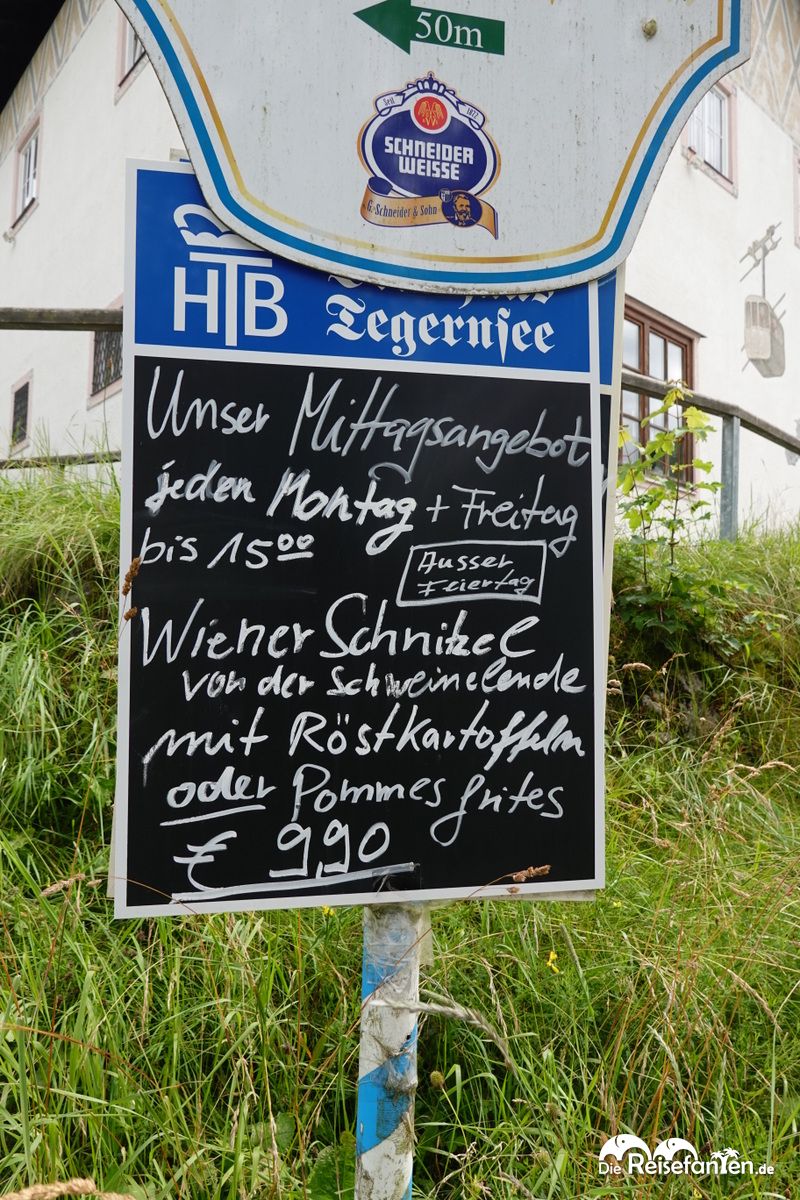 50m
Seit 1872
SCHNEIDER
WEISSE
G. Schneider & Sohn
HTB
Tegernsee
Unser Mittagsangebot
jeden Montag + Freitag
bis 15⁰⁰
Ausser
Feiertag
Wiener Schnitzel
von der Schweinelende
mit Röstkartoffeln
oder Pommes frites
€ 9,90
Die Reisefanten.de